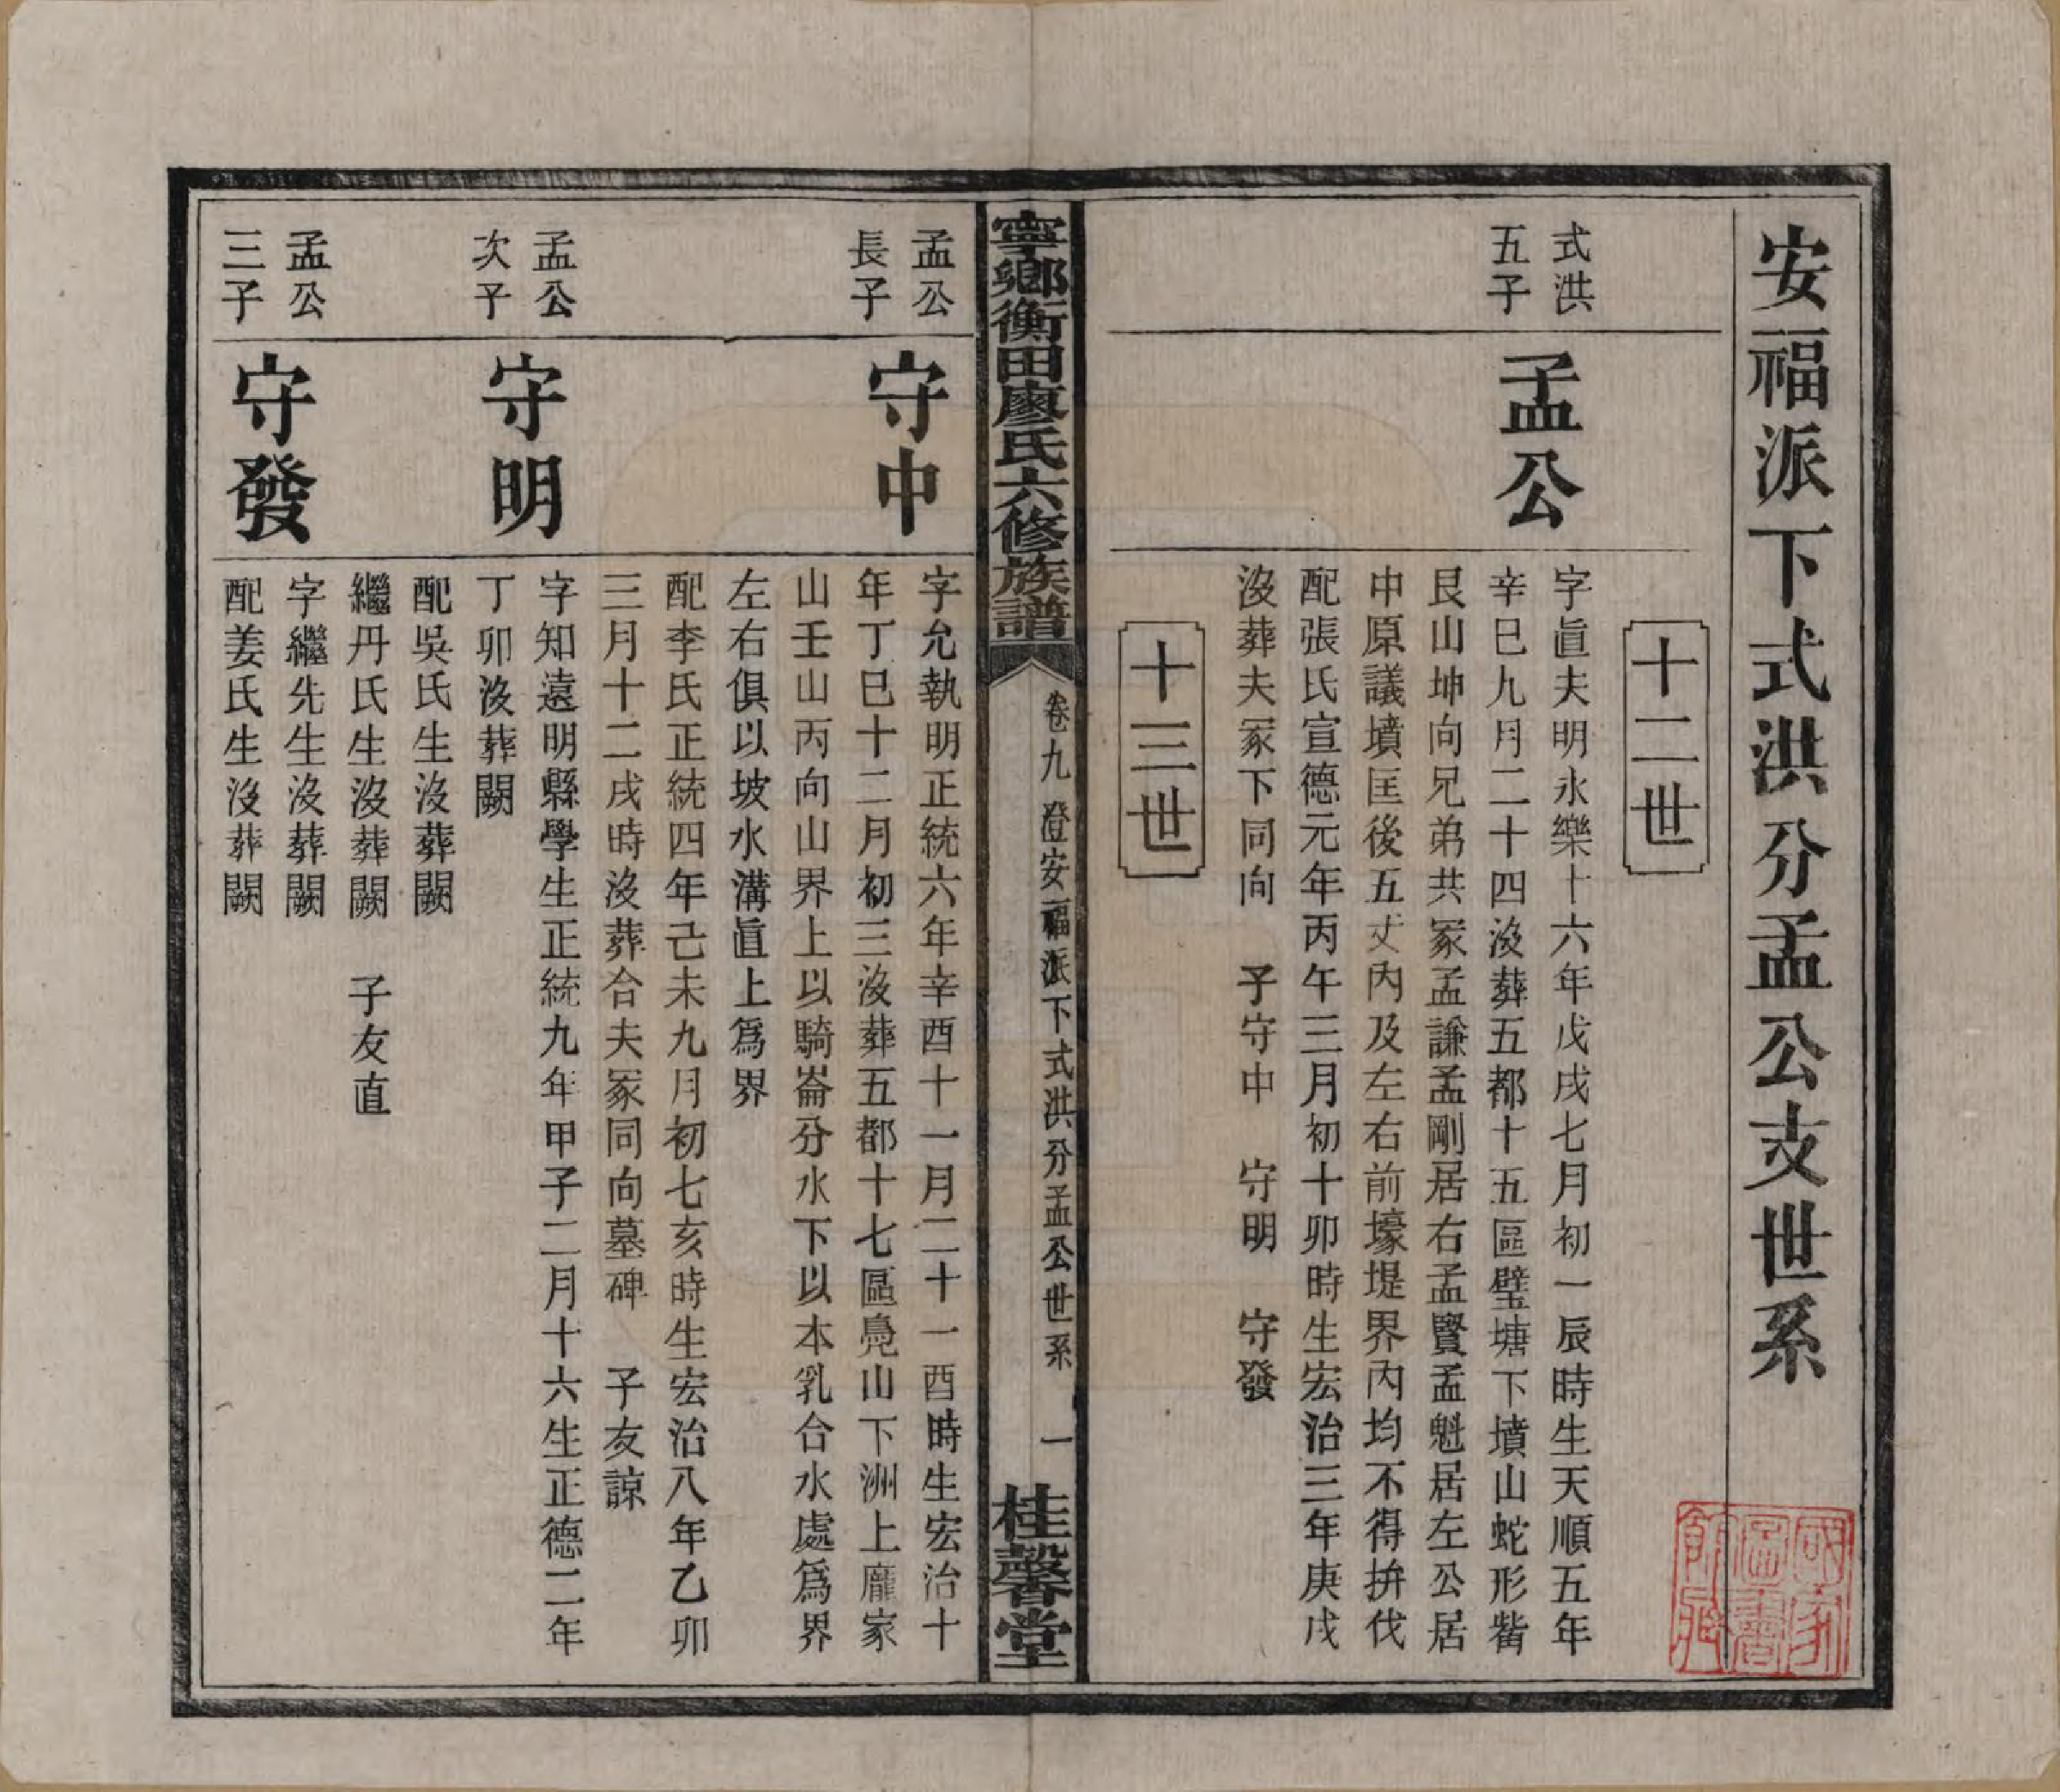 安福派下式洪分孟公支世系
十二世
式洪
五子
孟公
字眞夫明永樂十六年戊戌七月初一辰時生天順五年
辛巳九月二十四沒葬五都十五區璧塘下墳山蛇形觜
艮山坤向兄弟共冢孟謙孟剛居右孟賢孟魁居左公居
中原議墳匡後五丈內及左右前壕堤界內均不得拚伐
配張氏宣德元年丙午三月初十卯時生宏治三年庚戌
沒葬夫冢下同向　子守中　守明　守發
十三世
寧鄉衡田廖氏六修族譜
卷九　澄安福派下式洪分孟公世系　一
桂馨堂
孟公
長子
守中
字允執明正統六年辛酉十一月二十一酉時生宏治十
年丁巳十二月初三沒葬五都十七區凫山下洲上龐家
山壬山丙向山界上以騎崙分水下以本乳合水處爲界
左右俱以坡水溝眞上爲界
配李氏正統四年己未九月初七亥時生宏治八年乙卯
三月十二戌時沒葬合夫冢同向墓碑　子友諒
孟公
次子
守明
字知遠明縣學生正統九年甲子二月十六生正德二年
丁卯沒葬闕
配吳氏生沒葬闕
繼丹氏生沒葬闕　子友直
孟公
三子
守發
字繼先生沒葬闕
配姜氏生沒葬闕
國家圖書館藏